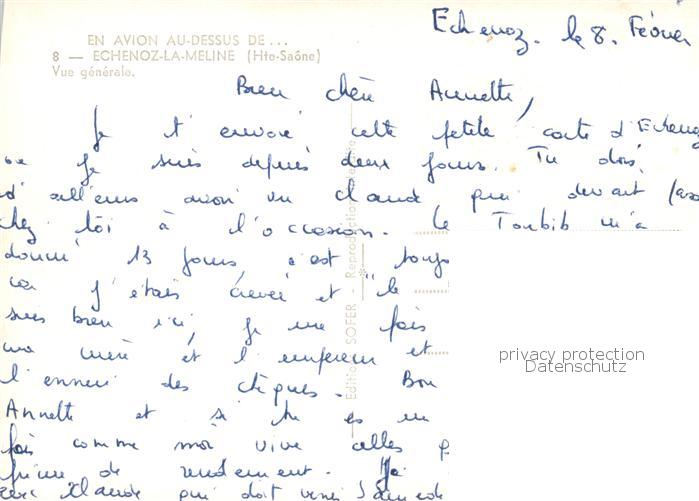 Echenoz. le 8. Février
EN AVION AU-DESSUS DE...
8 — ECHENOZ-LA-MELINE (Hte-Saône)
Vue générale.
Bien chère Annette,
Je t'envoie cette petite carte d'Echenoz
où je suis depuis deux jours. Tu dois
d'ailleurs avoir vu Claude qui devait
chez toi à l'occasion. Le Toubib m'a
donné 13 jours, c'est toujo
car j'étais crevée et le
suis bien ici, je me fais
ma mère et l'
l'ennui des cliques. Bon
Annette et si tu es un
fois comme moi vive celles
prime de rendement. Je
avec Claude qui doit venir Samedi
Editions SOFER - Reproduction
privacy protection
Datenschutz